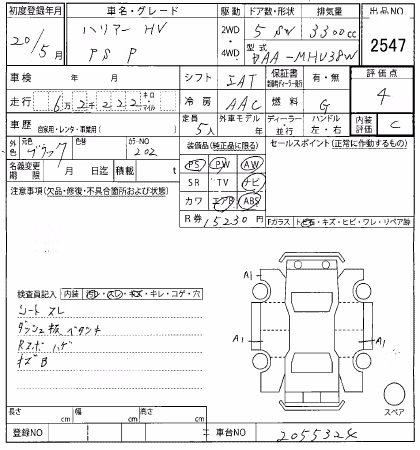 初度登録年月 車名・グレード 駆動 ドア数・形状 排気量 出品NO
20/5月 ハリアー HV 2WD・4WD 5 SW 3300cc 2547
PSP 型式 DAA-MHU38W
車検 年 月 シフト IAT 保証書 有・無 評価点
走行 6万2千222 キロ マイル 冷房 AAC 燃料 G 4
車歴 自家用・レンタ・事業用( ) 定員 5人 外車モデル 年 ディーラー・並行 ハンドル 左・右 内装評価 C
外色 元色 ブラック 色替 カラーNO 202 装備品(純正品に限る) セールスポイント(正常に作動するもの)
名義変更期限 月 日迄 積載 t PS PW AW
注意事項(欠品・修復・不具合箇所および状態) SR TV ナビ
カワ エアB ABS
R券 15230円 Fガラス トビ石・キズ・ヒビ・ワレ・リペア跡
A1 A1
検査員記入 内装 汚レ・スレ・キズ・キレ・コゲ・穴
シート スレ
ダッシュ板 ベタツキ
Rスポ ハゲ
キズB
A1 A1
スペア
長さ cm 幅 cm 高さ cm
登録NO 車台NO 2055324